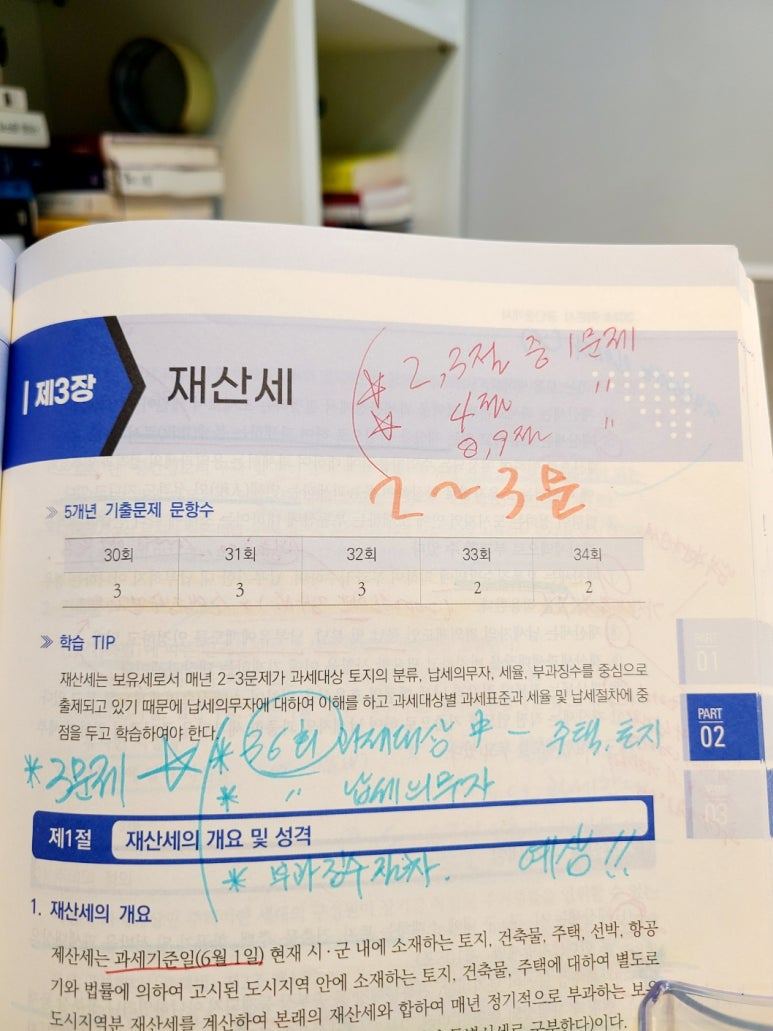 제3장
재산세
2, 3절 중 1문제
* 4절 〃
* 8, 9절 〃
2 ~ 3문
» 5개년 기출문제 문항수
30회 31회 32회 33회 34회
3 3 3 2 2
» 학습 TIP
재산세는 보유세로서 매년 2-3문제가 과세대상 토지의 분류, 납세의무자, 세율, 부과징수를 중심으로
출제되고 있기 때문에 납세의무자에 대하여 이해를 하고 과세대상별 과세표준과 세율 및 납세절차에 중
점을 두고 학습하여야 한다.
PART
01
PART
02
03
* 3문제
* 36회 과세대상 * - 주택, 토지
* 〃 납세의무자
제1절 재산세의 개요 및 성격
* 부과징수절차. 예상!!
1. 재산세의 개요
재산세는 과세기준일(6월 1일) 현재 시·군 내에 소재하는 토지, 건축물, 주택, 선박, 항공
기와 법률에 의하여 고시된 도시지역 안에 소재하는 토지, 건축물, 주택에 대하여 별도로
도시지역분 재산세를 계산하여 본래의 재산세와 합하여 매년 정기적으로 부과하는 보유
구분한다)이다.